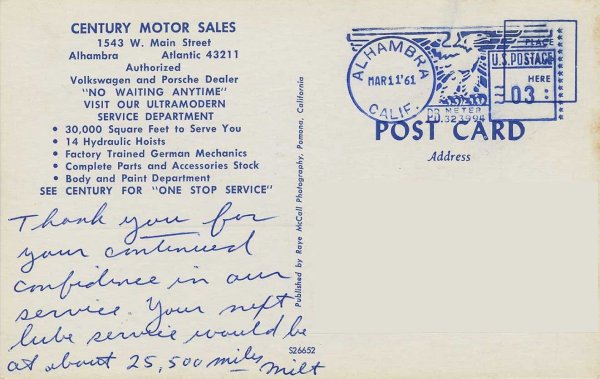 CENTURY MOTOR SALES
1543 W. Main Street
Alhambra Atlantic 43211
Authorized
Volkswagen and Porsche Dealer
"NO WAITING ANYTIME"
VISIT OUR ULTRAMODERN
SERVICE DEPARTMENT
• 30,000 Square Feet to Serve You
• 14 Hydraulic Hoists
• Factory Trained German Mechanics
• Complete Parts and Accessories Stock
• Body and Paint Department
SEE CENTURY FOR "ONE STOP SERVICE"
Thank you for
your continued
confidence in our
service. Your next
lube service would be
at about 25,500 miles
— Milt
Published by Raye McCall Photography, Pomona, California
S26652
ALHAMBRA
MAR 11 '61
CALIF.
PLACE
U.S. POSTAGE
HERE
03
P.B. METER
323994
POST CARD
Address